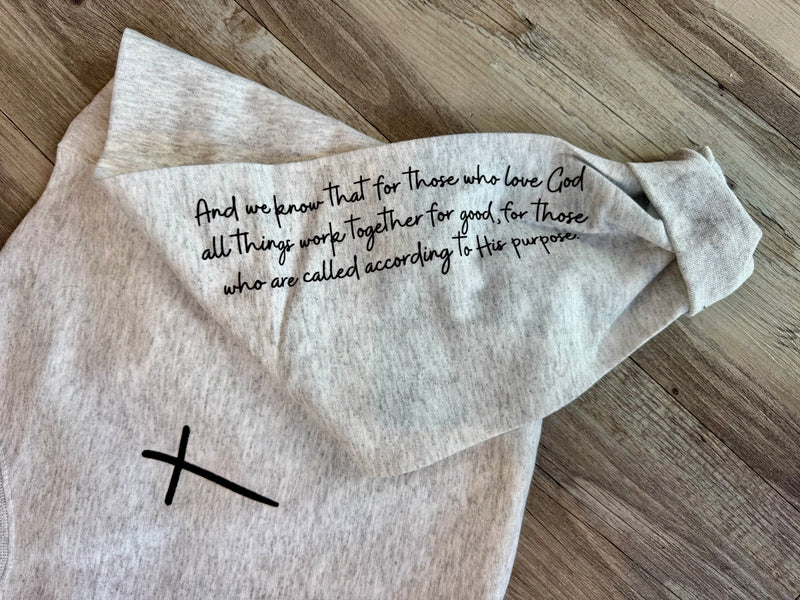 And we know that for those who love God
all things work together for good, for those
who are called according to His purpose.